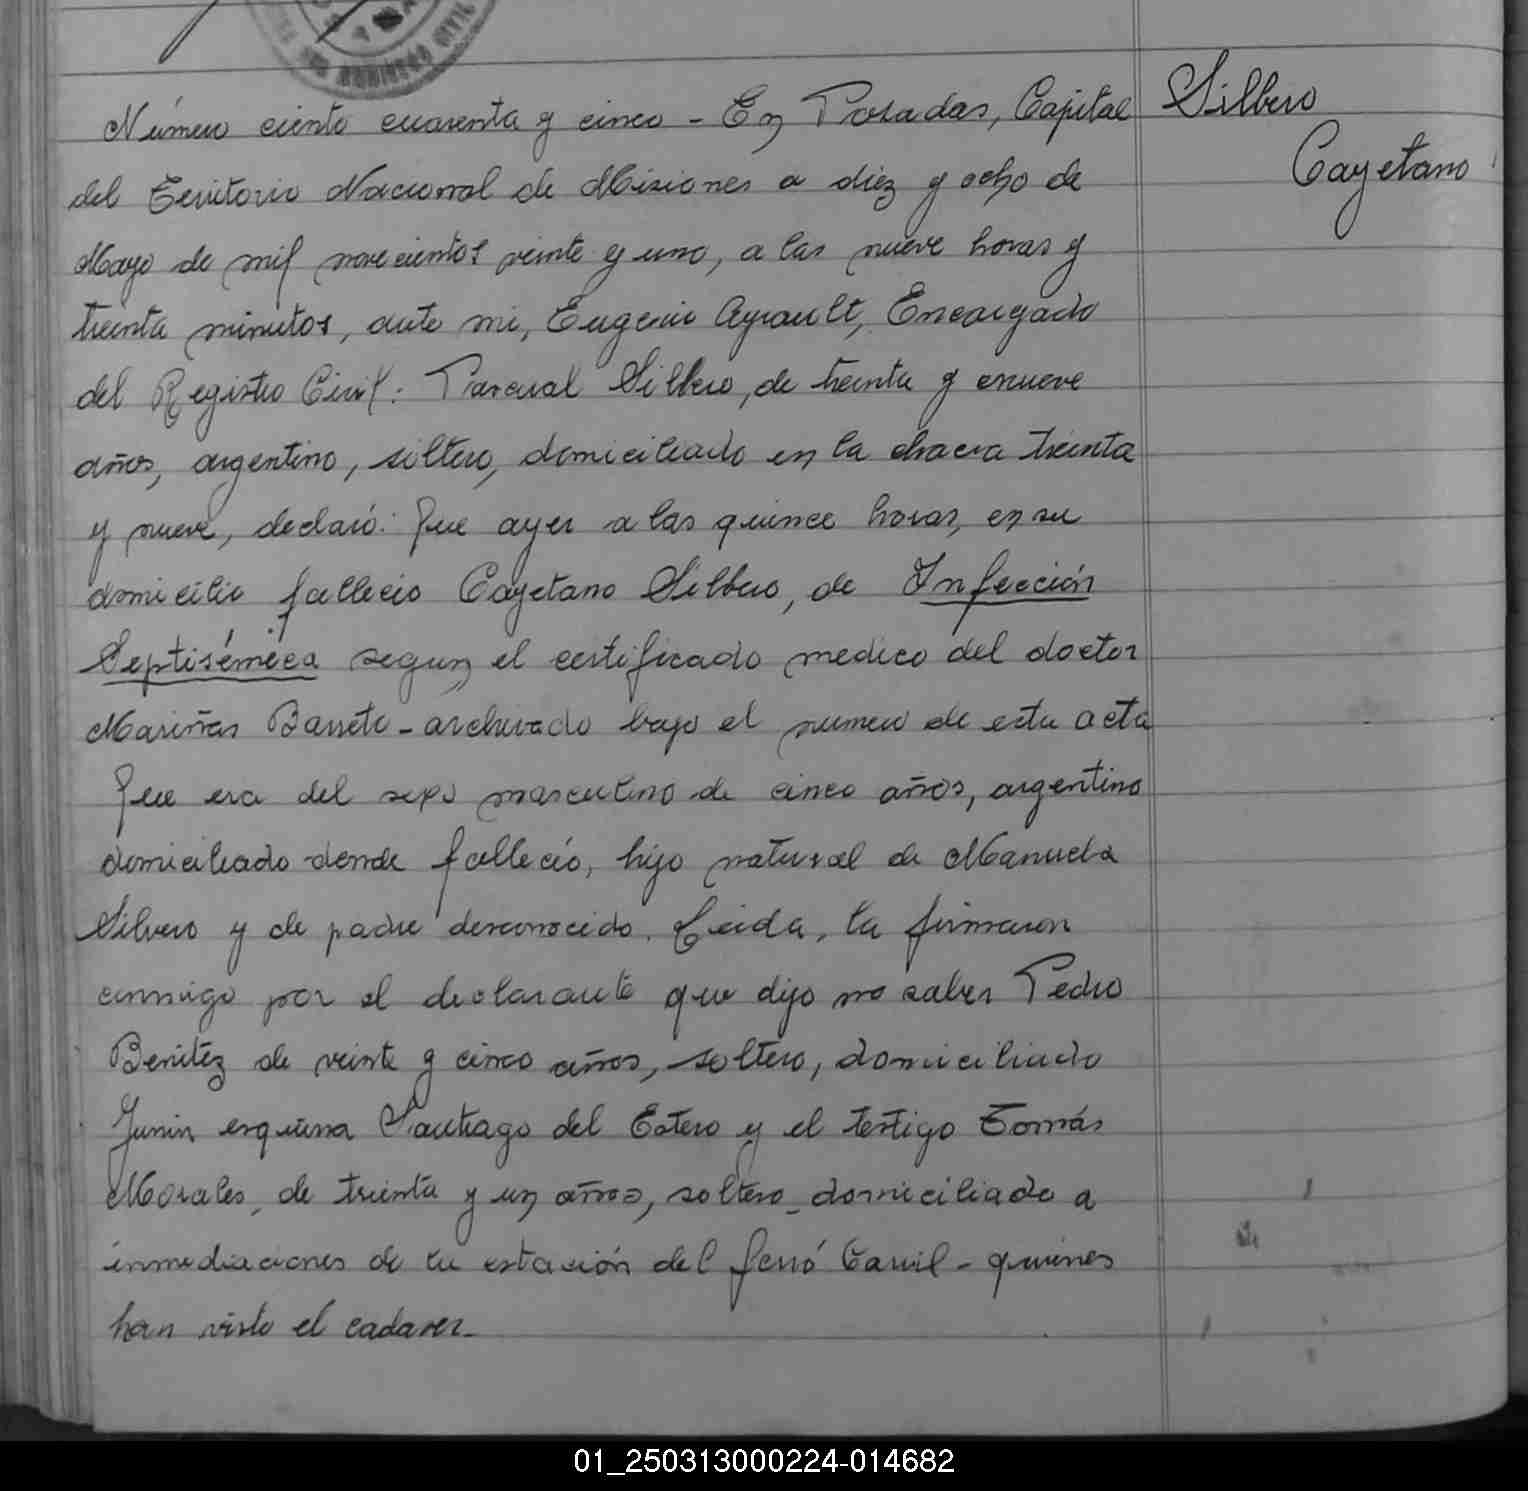 Silbero
Cayetano
Número ciento cuarenta y cinco - En Posadas, Capital
del Territorio Nacional de Misiones a diez y ocho de
Mayo de mil novecientos veinte y uno, a las nueve horas y
treinta minutos, ante mi, Eugenio Ayrault, Encargado
del Registro Civil: Pascual Silbero, de treinta y nueve
años, argentino, soltero, domiciliado en la chacra treinta
y nueve, declaró: Que ayer a las quince horas, en su
domicilio falleció Cayetano Silbero, de Infección
Septiséméca segun el certificado medico del doctor
Mariñas Barreto - archivado bajo el numero de esta acta
Que era del sexo masculino de cinco años, argentino
domiciliado donde falleció, hijo natural de Manuela
Silvero y de padre desconocido. Leida, la firmaron
conmigo por el declarante que dijo no saber Pedro
Benitez de veinte y cinco años, soltero, domiciliado
Junin esquina Santiago del Estero y el testigo Tomás
Morales, de treinta y un años, soltero, domiciliado a
inmediaciones de la estación del ferró Carril - quiénes
han visto el cadaver.
01_250313000224-014682